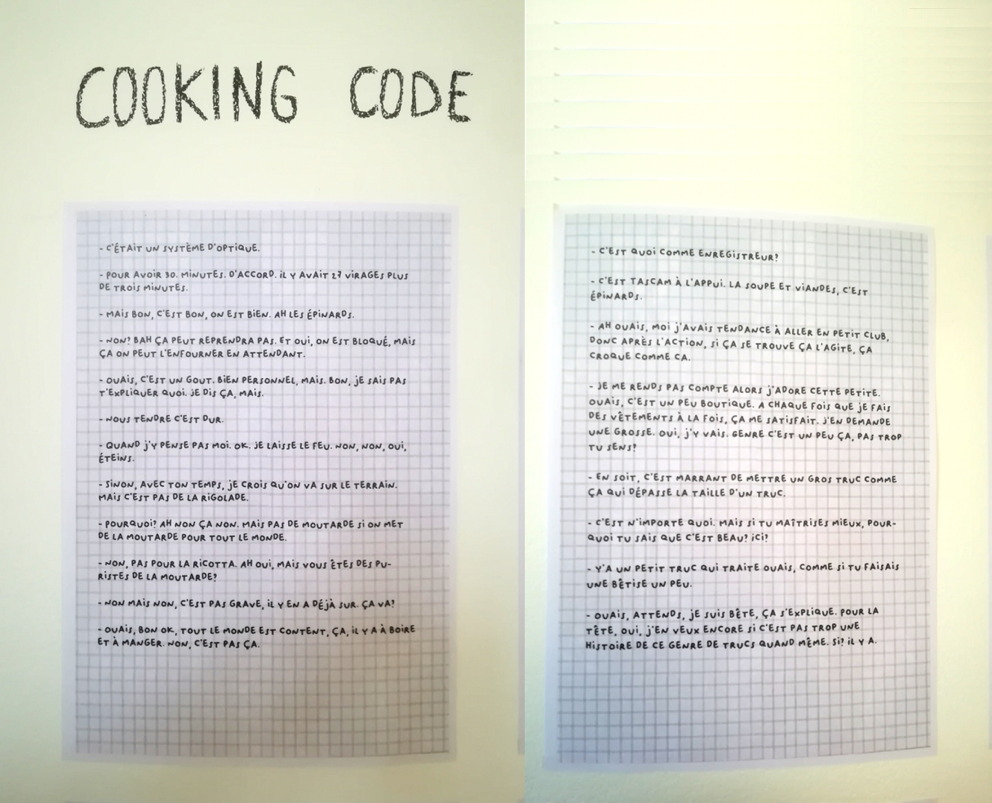 COOKING CODE
- C'ÉTAIT UN SYSTÈME D'OPTIQUE.
- POUR AVOIR 30. MINUTES. D'ACCORD. IL Y AVAIT 27 VIRAGES PLUS
DE TROIS MINUTES.
- MAIS BON, C'EST BON, ON EST BIEN. AH LES ÉPINARDS.
- NON? BAH ÇA PEUT REPRENDRA PAS. ET OUI, ON EST BLOQUÉ, MAIS
ÇA ON PEUT L'ENFOURNER EN ATTENDANT.
- OUAIS, C'EST UN GOUT. BIEN PERSONNEL, MAIS. BON, JE SAIS PAS
T'EXPLIQUER QUOI. JE DIS ÇA, MAIS.
- NOUS TENDRE C'EST DUR.
- QUAND J'Y PENSE PAS MOI. OK. JE LAISSE LE FEU. NON, NON, OUI,
ÉTEINS.
- SINON, AVEC TON TEMPS, JE CROIS QU'ON VA SUR LE TERRAIN.
MAIS C'EST PAS DE LA RIGOLADE.
- POURQUOI? AH NON ÇA NON. MAIS PAS DE MOUTARDE SI ON MET
DE LA MOUTARDE POUR TOUT LE MONDE.
- NON, PAS POUR LA RICOTTA. AH OUI, MAIS VOUS ÊTES DES PU-
RISTES DE LA MOUTARDE?
- NON MAIS NON, C'EST PAS GRAVE, IL Y EN A DÉJÀ SUR. ÇA VA?
- OUAIS, BON OK, TOUT LE MONDE EST CONTENT, ÇA, IL Y A À BOIRE
ET À MANGER. NON, C'EST PAS ÇA.
- C'EST QUOI COMME ENREGISTREUR?
- C'EST TASCAM À L'APPUI. LA SOUPE ET VIANDES, C'EST
ÉPINARDS.
- AH OUAIS, MOI J'AVAIS TENDANCE À ALLER EN PETIT CLUB,
DONC APRÈS L'ACTION, SI ÇA SE TROUVE ÇA L'AGITE, ÇA
CROQUE COMME CA.
- JE ME RENDS PAS COMPTE ALORS J'ADORE CETTE PETITE.
OUAIS, C'EST UN PEU BOUTIQUE. A CHAQUE FOIS QUE JE FAIS
DES VÊTEMENTS À LA FOIS, ÇA ME SATISFAIT. J'EN DEMANDE
UNE GROSSE. OUI, J'Y VAIS. GENRE C'EST UN PEU ÇA, PAS TROP
TU SENS?
- EN SOIT, C'EST MARRANT DE METTRE UN GROS TRUC COMME
ÇA QUI DÉPASSE LA TAILLE D'UN TRUC.
- C'EST N'IMPORTE QUOI. MAIS SI TU MAÎTRISES MIEUX, POUR-
QUOI TU SAIS QUE C'EST BEAU? ICI?
- Y'A UN PETIT TRUC QUI TRAITE OUAIS, COMME SI TU FAISAIS
UNE BÊTISE UN PEU.
- OUAIS, ATTENDS, JE SUIS BÊTE, ÇA S'EXPLIQUE. POUR LA
TÊTE, OUI, J'EN VEUX ENCORE SI C'EST PAS TROP UNE
HISTOIRE DE CE GENRE DE TRUCS QUAND MÊME. SI? IL Y A.